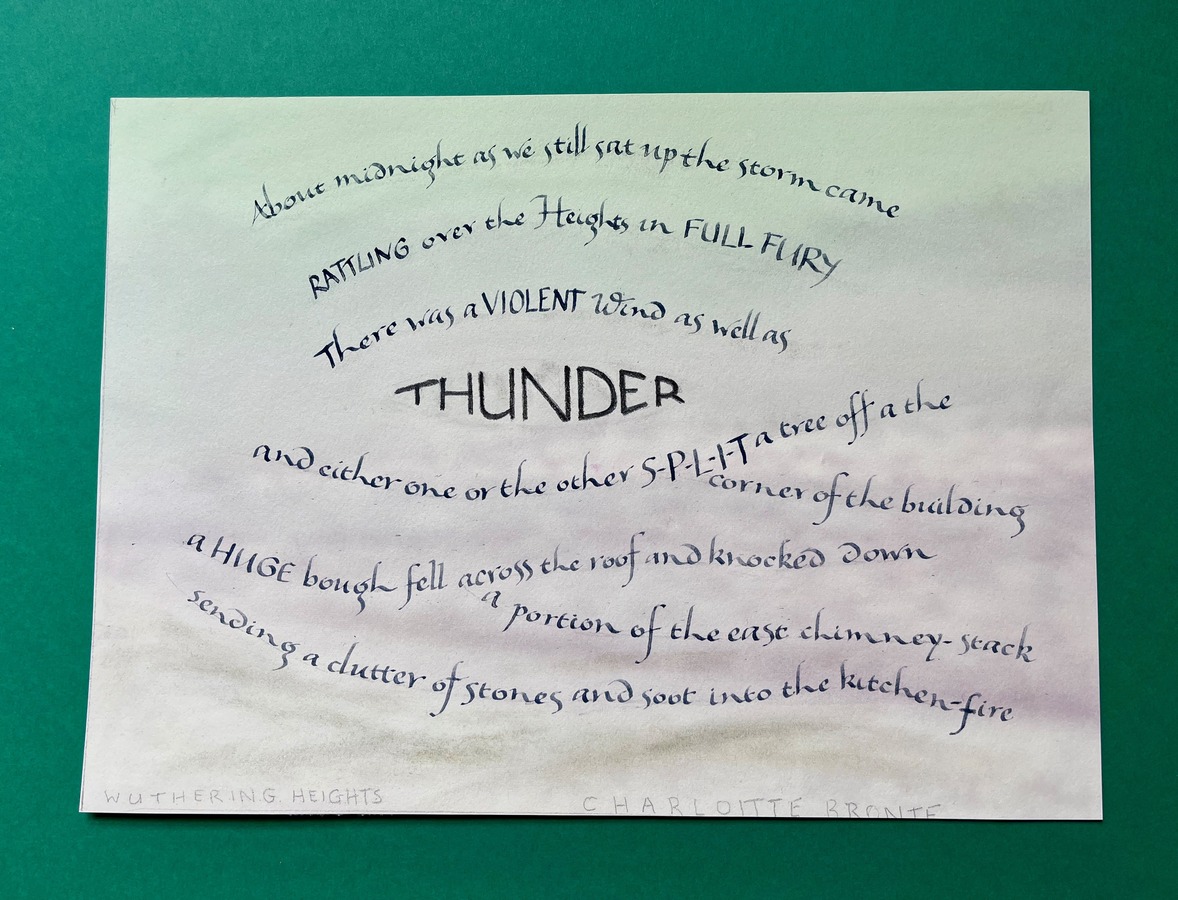 About midnight as we still sat up the storm came
RATTLING over the Heights in FULL FURY
There was a VIOLENT Wind as well as
THUNDER
and either one or the other S-P-L-I-T a tree off a the
corner of the building
a HUGE bough fell across the roof and knocked down
a portion of the east chimney-stack
sending a clutter of stones and soot into the kitchen-fire
WUTHERING HEIGHTS
CHARLOITTE BRONTE